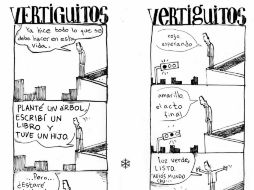 VERTIGUITOS
Ya hice todo lo que se
deba hacer en esta
vida.
PLANTÉ UN ÁRBOL,
ESCRIBÍ UN
LIBRO Y
TUVE UN HIJO.
...Pero...
¿ESTARÉ
VERTIGUITOS
rojo
esperando
amarillo
el acto
final
luz verde,
LISTO.
ADIÓS MUNDO